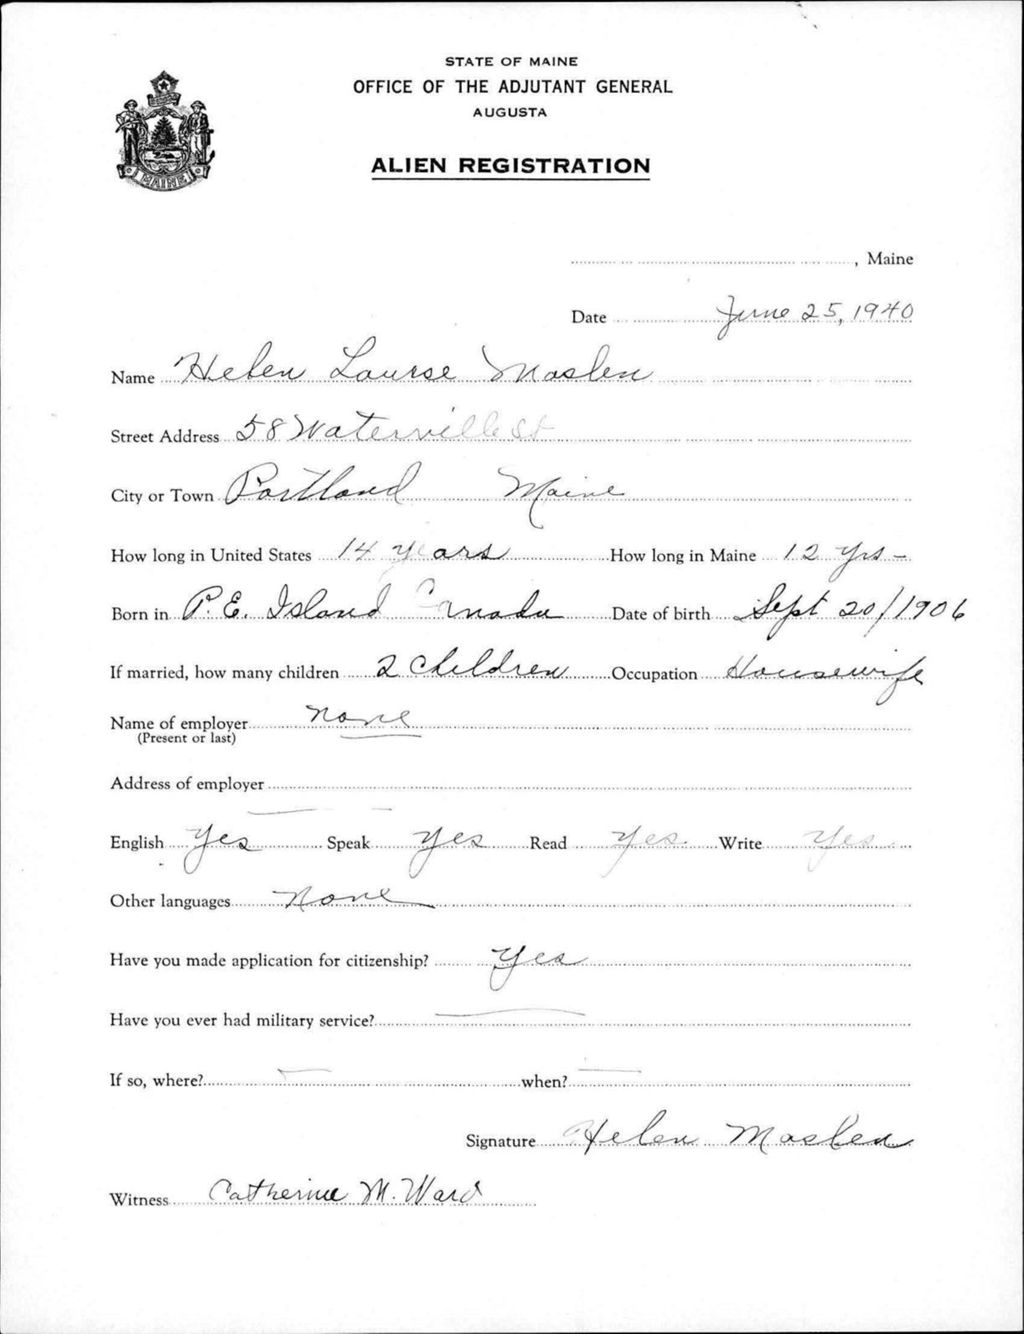 STATE OF MAINE
OFFICE OF THE ADJUTANT GENERAL
AUGUSTA
ALIEN REGISTRATION
MAINE
, Maine
Date June 25, 1940
Name Helen Lourse Maslen
Street Address 58 Waterville St
City or Town Portland Maine
How long in United States 14 years How long in Maine 12 yrs -
Born in P. E. Island Canada Date of birth Sept 20/1906
If married, how many children 2 children Occupation Housewife
Name of employer none
(Present or last)
Address of employer
English Yes Speak Yes Read Yes Write Yes
Other languages None
Have you made application for citizenship? Yes
Have you ever had military service?
If so, where? when?
Signature Helen Maslen
Witness Catherine M. Ward